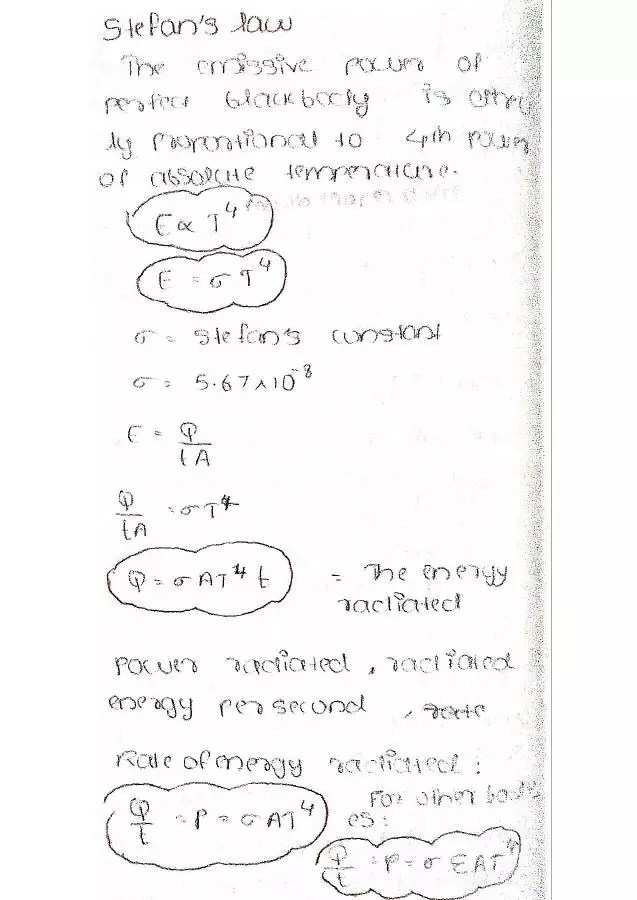 Stefan's law
The emissive power of
perfect blackbody is
ly proportional to 4th power
of absolute temperature.
E ∝ T⁴
E = σ T⁴
σ = Stefan's constant
σ = 5.67 × 10⁻⁸
E = Q/tA
Q/tA = σT⁴
Q = σAT⁴ t = The energy
radiated
Power radiated, radiated
energy per second, rate
Rate of energy radiated :
For other bodi
es:
Q/t = P = σAT⁴
Q/t = P = σ ε A T⁴